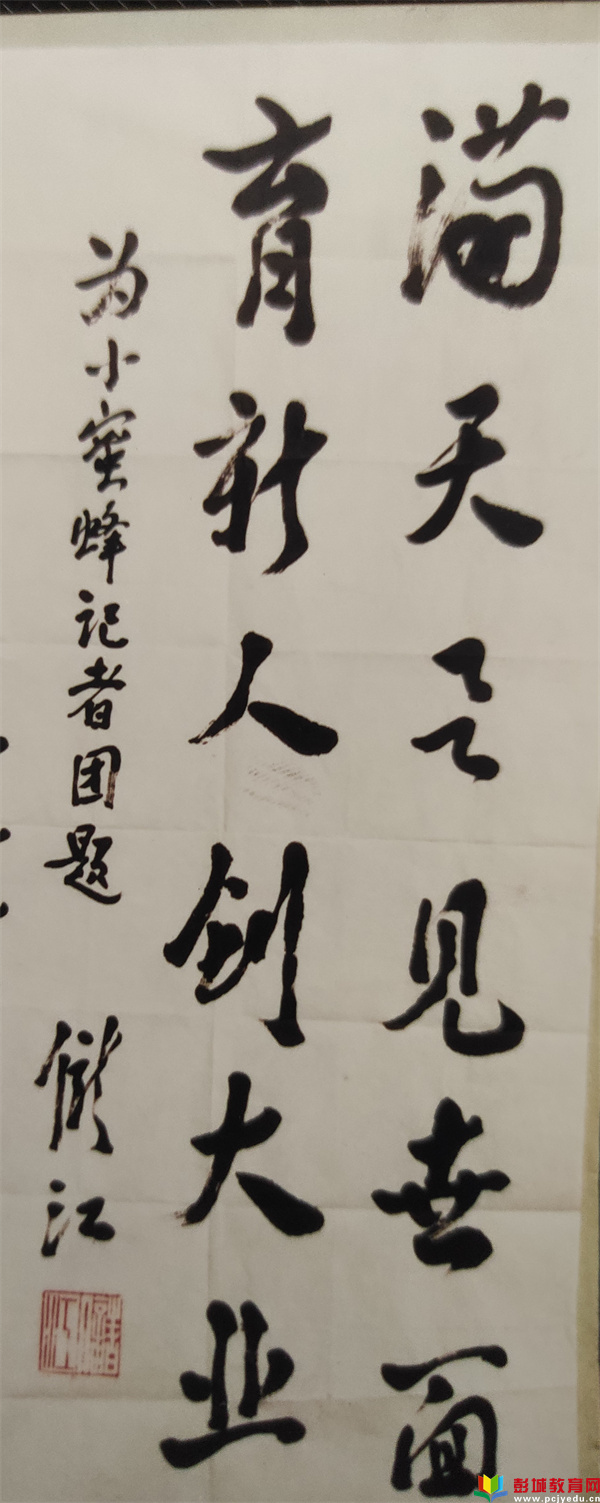 满天飞见世面
育新人创大业
为小蜜蜂记者团题
储江
彭城教育网
www.pcjyedu.cn